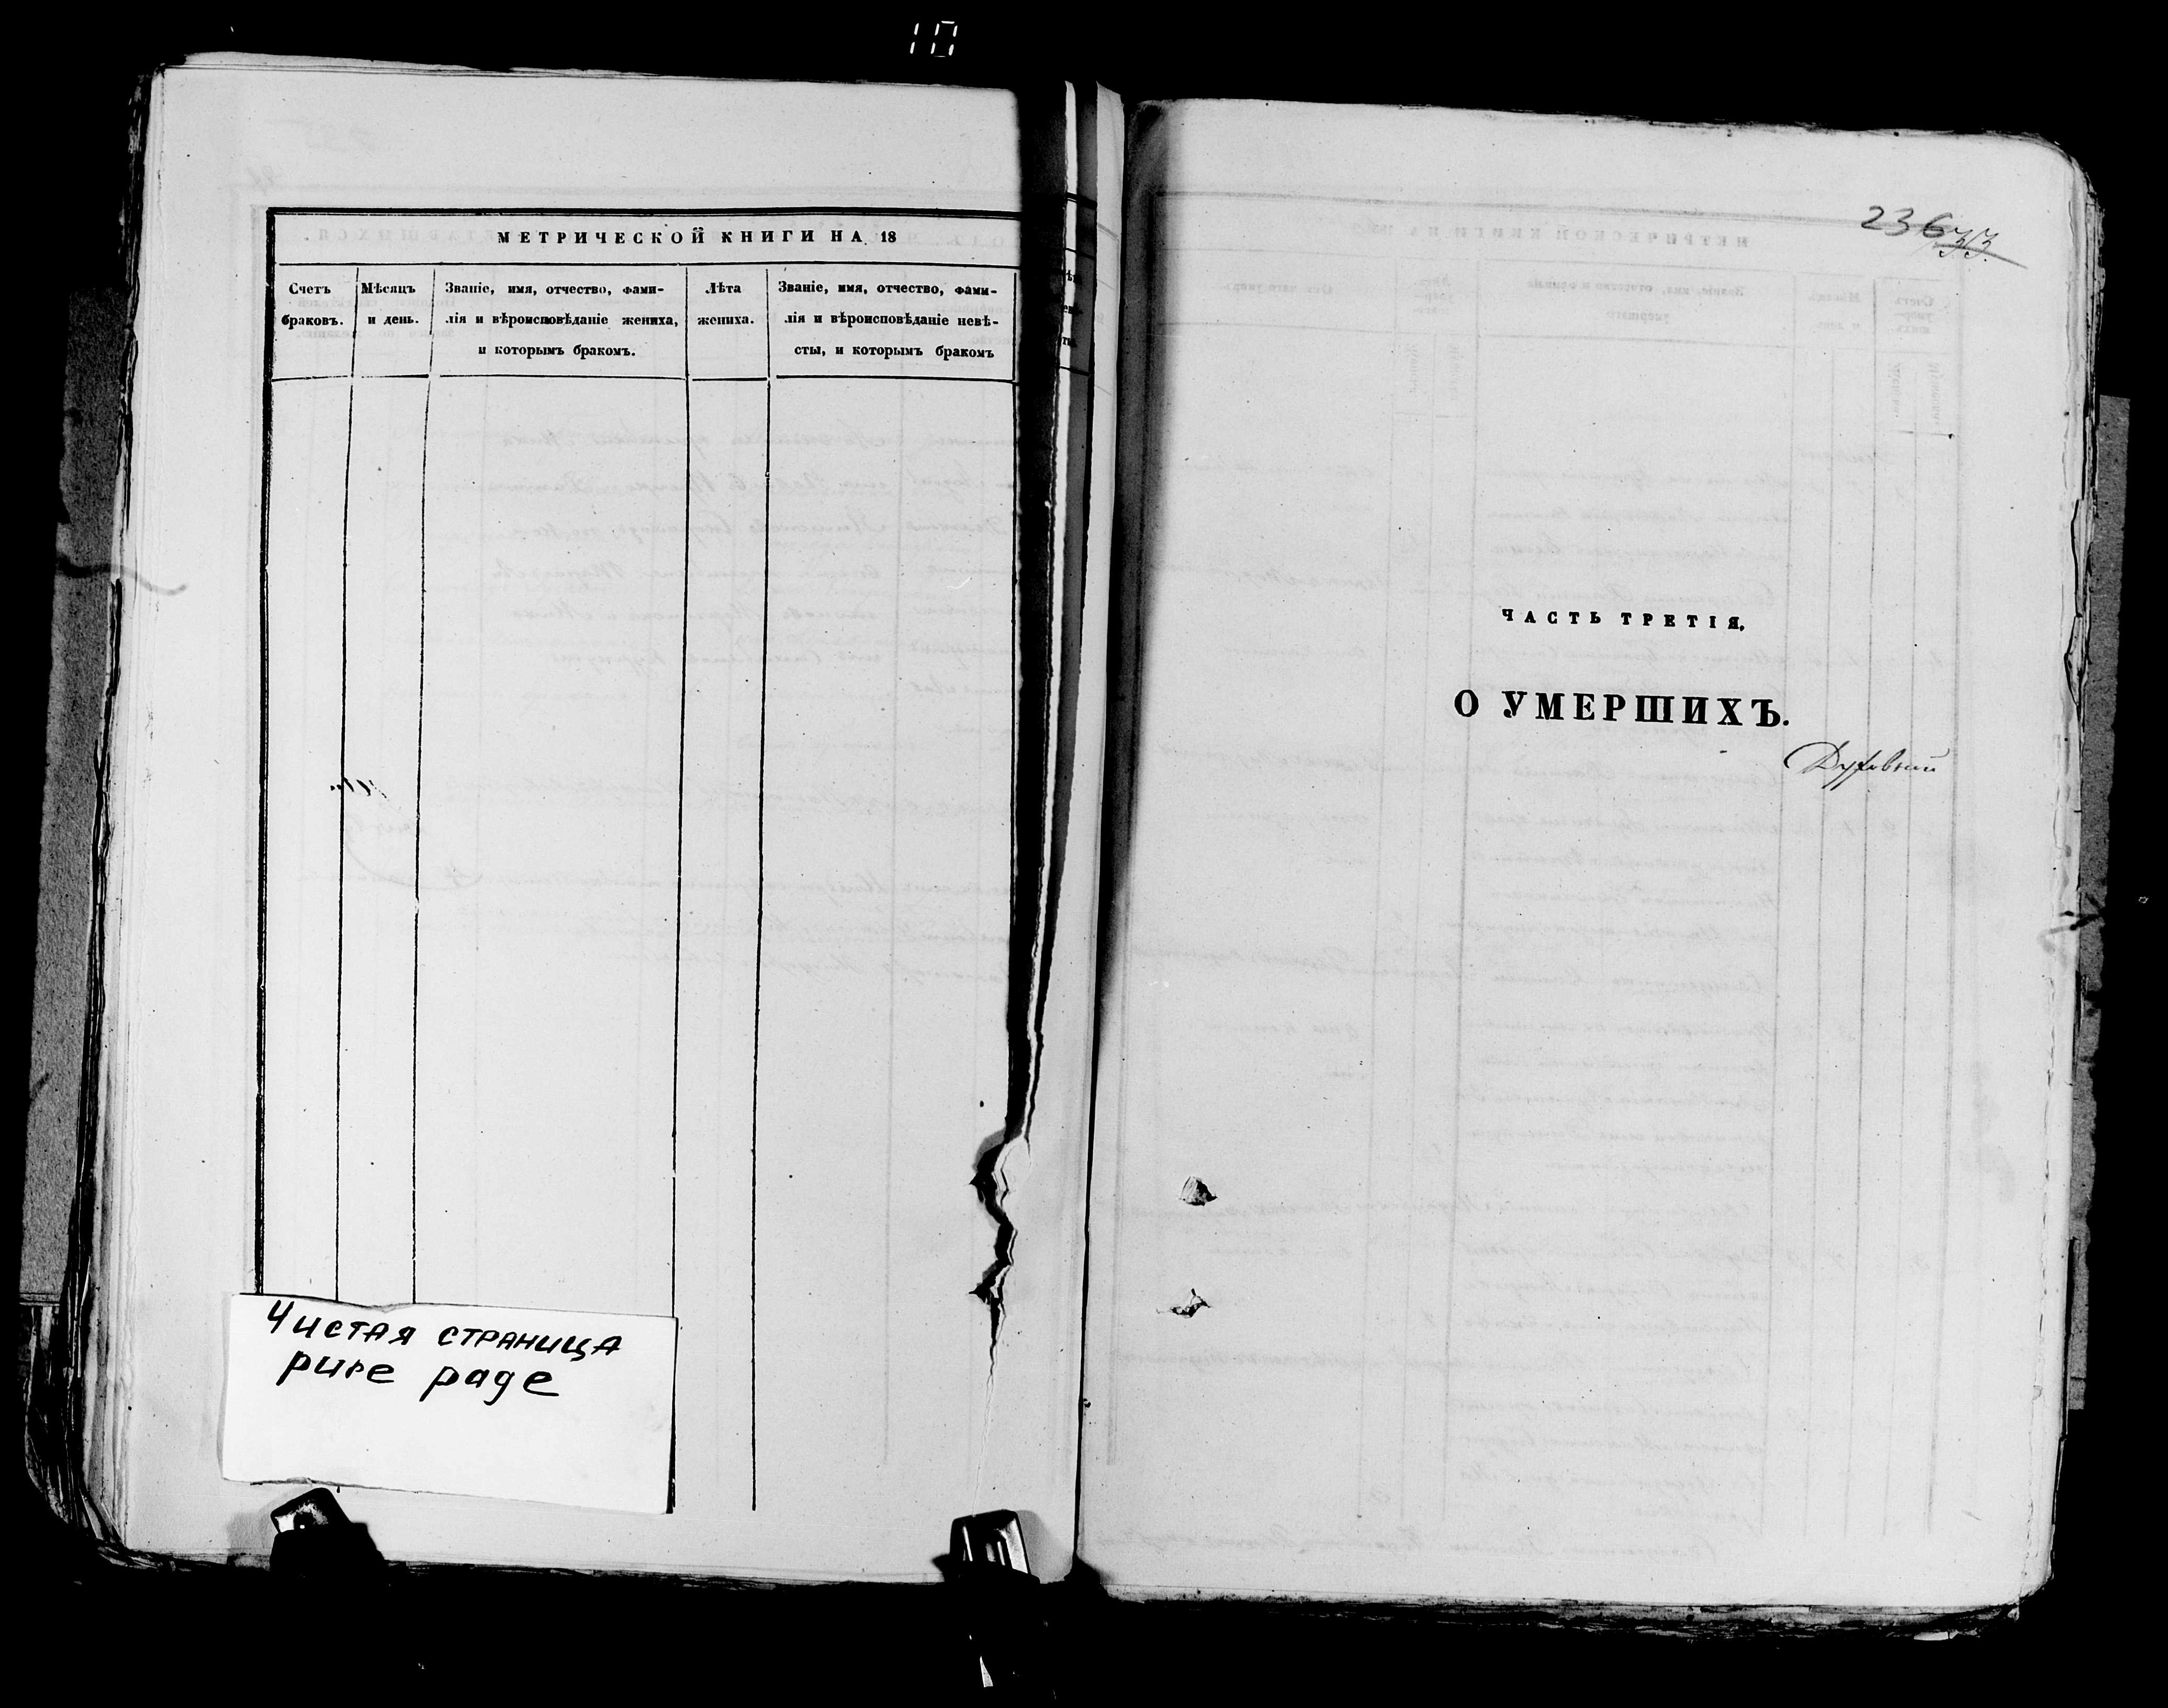 10
МЕТРИЧЕСКОЙ КНИГИ НА 18
Счетъ браковъ.
Мѣсяцъ и день.
Званіе, имя, отчество, фами-
лія и вѣроисповѣданіе жениха,
и которымъ бракомъ.
Лѣта жениха.
Званіе, имя, отчество, фами-
лія и вѣроисповѣданіе невѣ-
сты, и которымъ бракомъ
Чистая страница
pure page
236
33.
ЧАСТЬ ТРЕТІЯ.
О УМЕРШИХЪ.